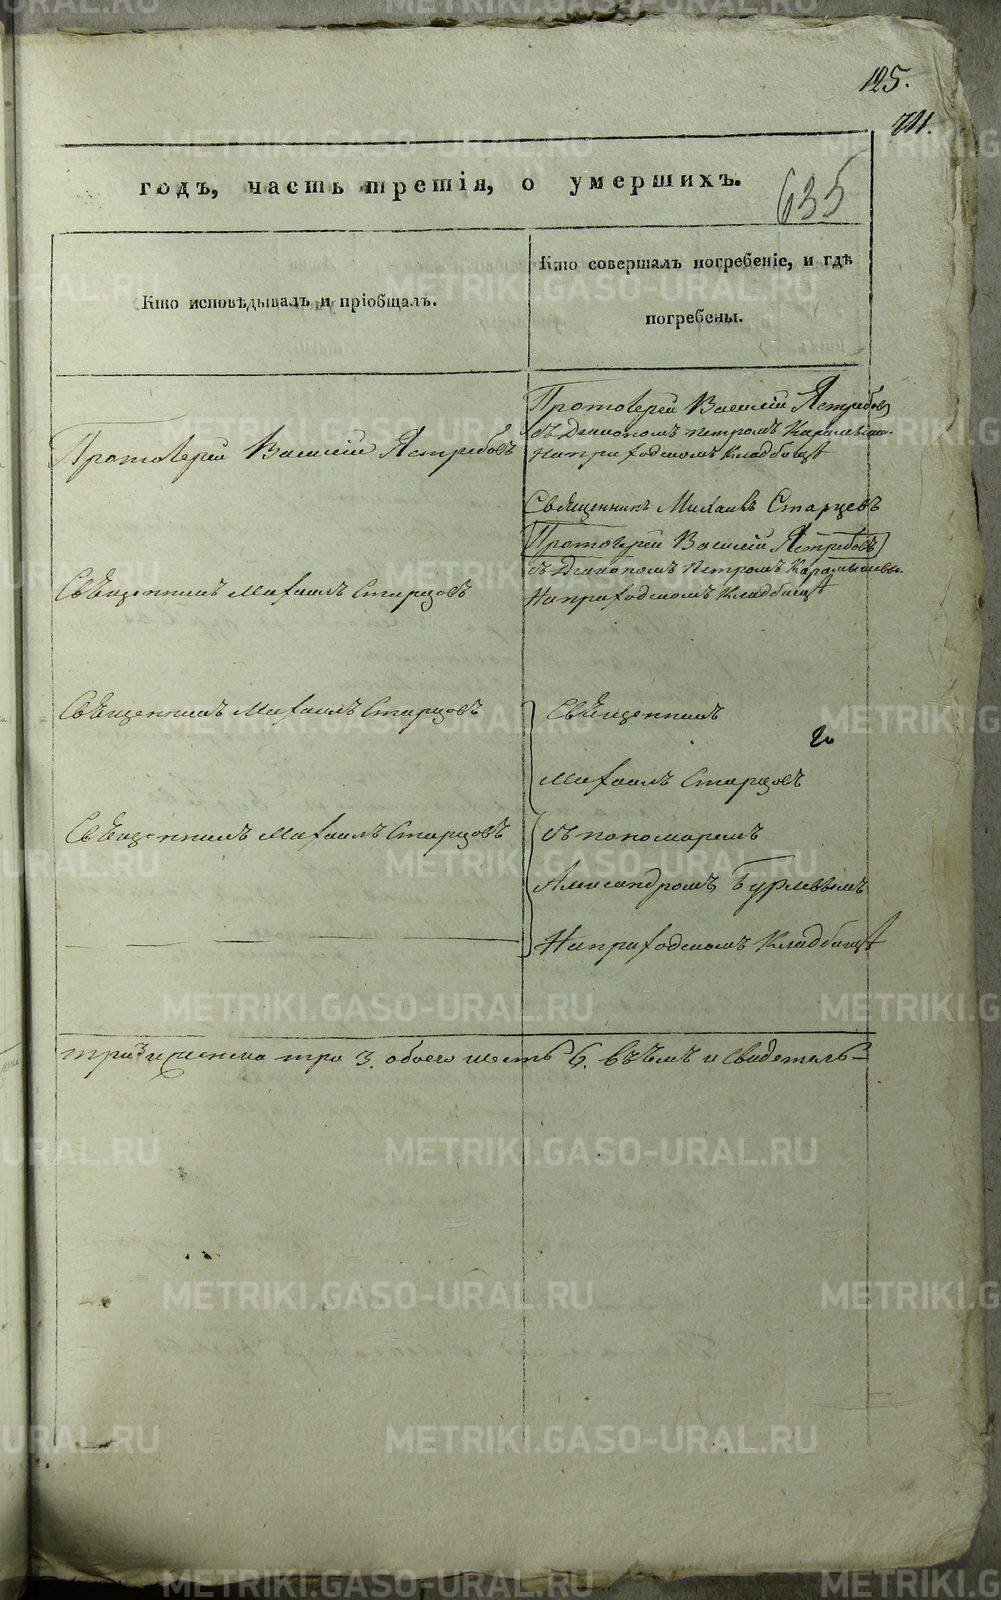 125.
711.
годъ, часть третія, о умершихъ.
635
Кто исповѣдывалъ и пріобщалъ.
Кто совершалъ погребеніе, и гдѣ
погребены.
Протоіерей Василій Ястребовъ
Протоіерей Василій Ястребовъ
съ Діакономъ Петромъ
На приходскомъ Кладбищѣ
Священникъ Михаилъ Старцевъ
Протоіерей Василій Ястребовъ
съ Діакономъ Петромъ Карамышевы
Священникъ Михаилъ Старцовъ
На приходскомъ Кладбищѣ
Священникъ Михаилъ Старцовъ
Священникъ
Михаилъ Старцовъ
Священникъ Михаилъ Старцовъ
съ пономаремъ
Александромъ
На приходскомъ Кладбищѣ
три 3 и женска три 3. обоего шесть 6. въ чемъ и свидетель-
METRIKI.GASO-URAL.RU